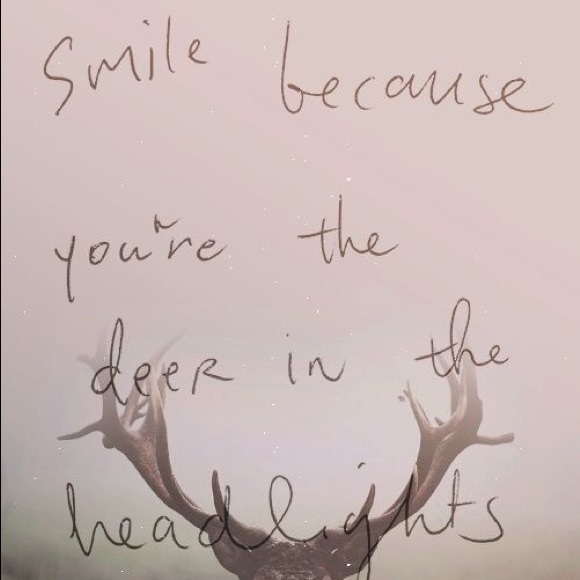 smile because
you're the
deer in the
headlights